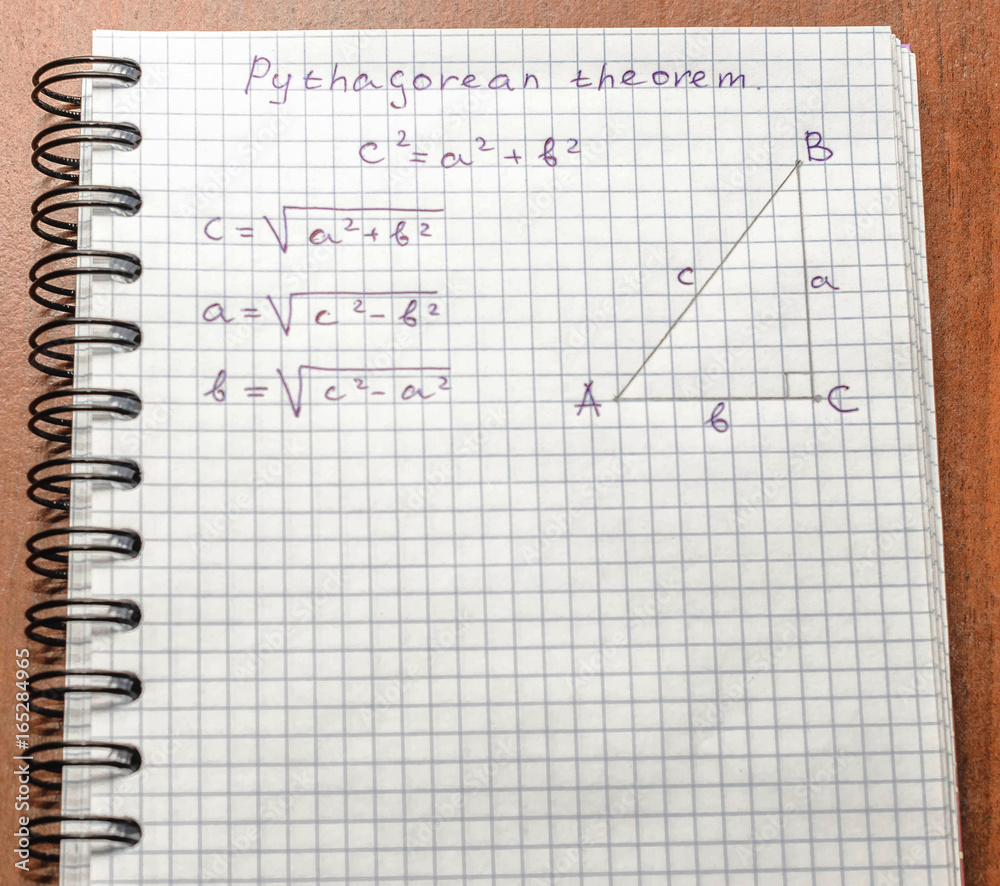 Pythagorean theorem.
c² = a² + b²
c = √(a² + b²)
a = √(c² - b²)
b = √(c² - a²)
B
c
a
A
b
C
Adobe Stock | #165284965